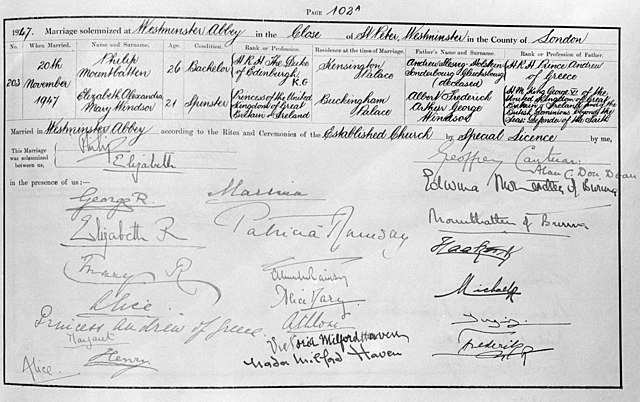 PAGE 102A
1947. Marriage solemnized at Westminster Abbey in the Close of St Peter, Westminster in the County of London
No. When Married. Name and Surname. Age. Condition. Rank or Profession. Residence at the time of Marriage. Father's Name and Surname. Rank or Profession of Father.
203 20th November 1947 Philip Mountbatten 26 Bachelor H R H The Duke of Edinburgh K G Kensington Palace Andrew Sleswig-Holstein Sonderbourg Glucksbourg (deceased) H R H Prince Andrew of Greece
Elizabeth Alexandra Mary Windsor 21 Spinster Princess of the United Kingdom of Great Britain & Ireland Buckingham Palace Albert Frederick Arthur George Windsor H.M. King George VI of the United Kingdom of Great Britain & Ireland and of the British Dominions beyond the Seas: Defender of the Faith
Married in Westminster Abbey according to the Rites and Ceremonies of the Established Church by Special Licence by me,
This Marriage was solemnized between us,
Philip
Elizabeth
Geoffrey Cantuar:
Alan C. Don Dean
in the presence of us:
George R.
Marina
Edwina Mountbatten of Burma
Elizabeth R
Patricia Ramsay
Mountbatten of Burma
Mary R
Haakon R
Alice Mary
Michael R
Alice
Princess Andrew of Greece
Athlone
Margaret
Victoria Milford Haven
Henry
Nada Milford Haven
Frederik R
Alice.